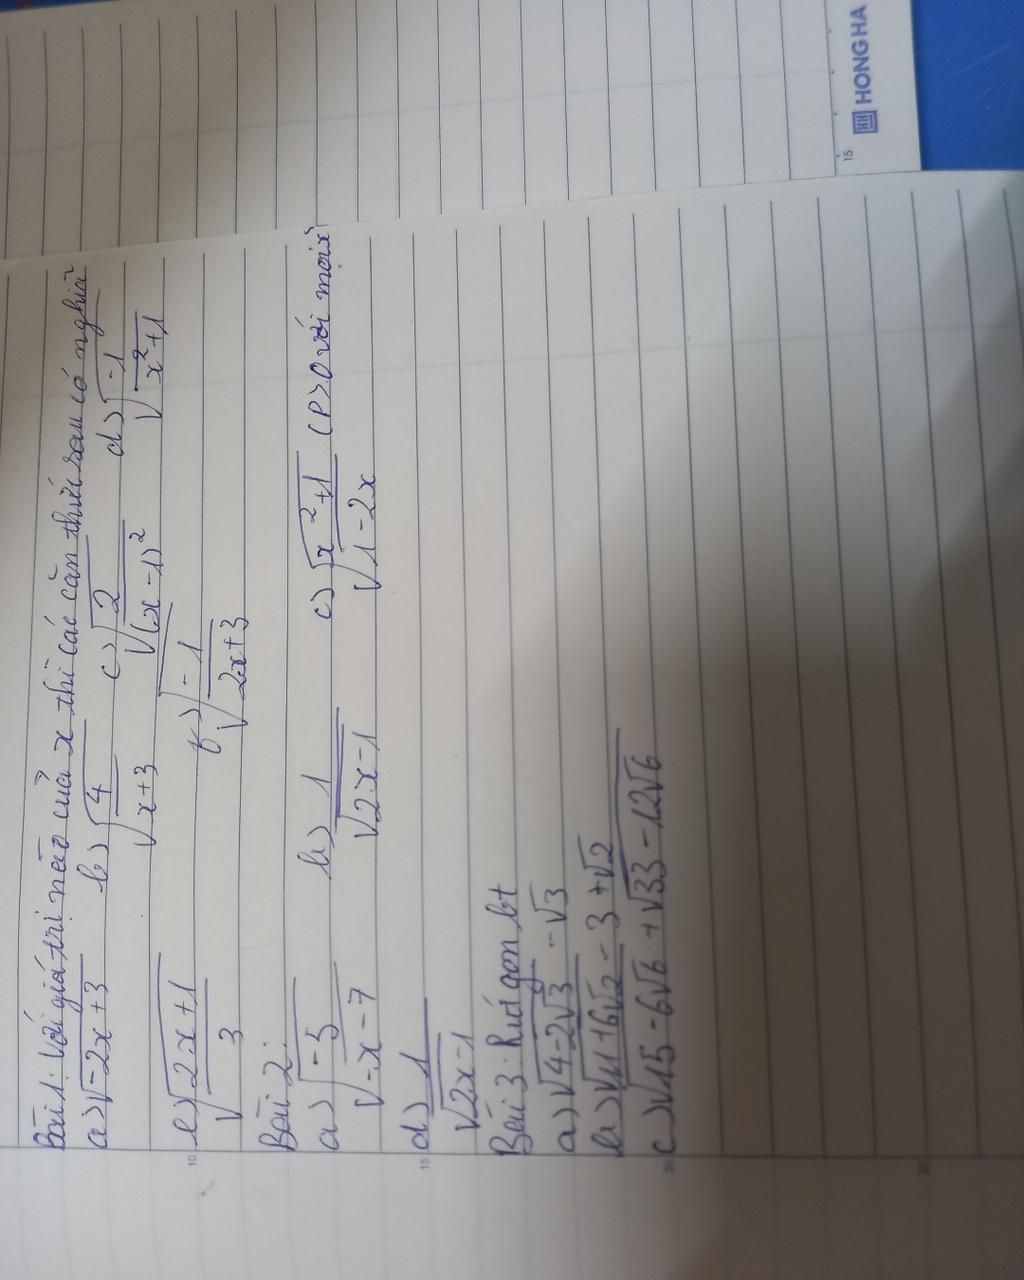 Bài 1: Với giá trị nào của x thì các căn thức sau có nghĩa
a) √-2x+3 b) √4/√x+3 c) √2/√(x-1)² d) √-1/√x²+1
e) √2x+1/√3 f) √-1/√2x+3
Bài 2:
a) √-5/√-x-7 b) 1/√2x-1 c) √x²+1/√1-2x (P>0 với mọi x)
d) 1/√2x-1
Bài 3: Rút gọn bt
a) √4-2√3 - √3
b) √11+6√2 - 3+√2
c) √15-6√6 + √33-12√6
HONG HA
15
10
15
20
25